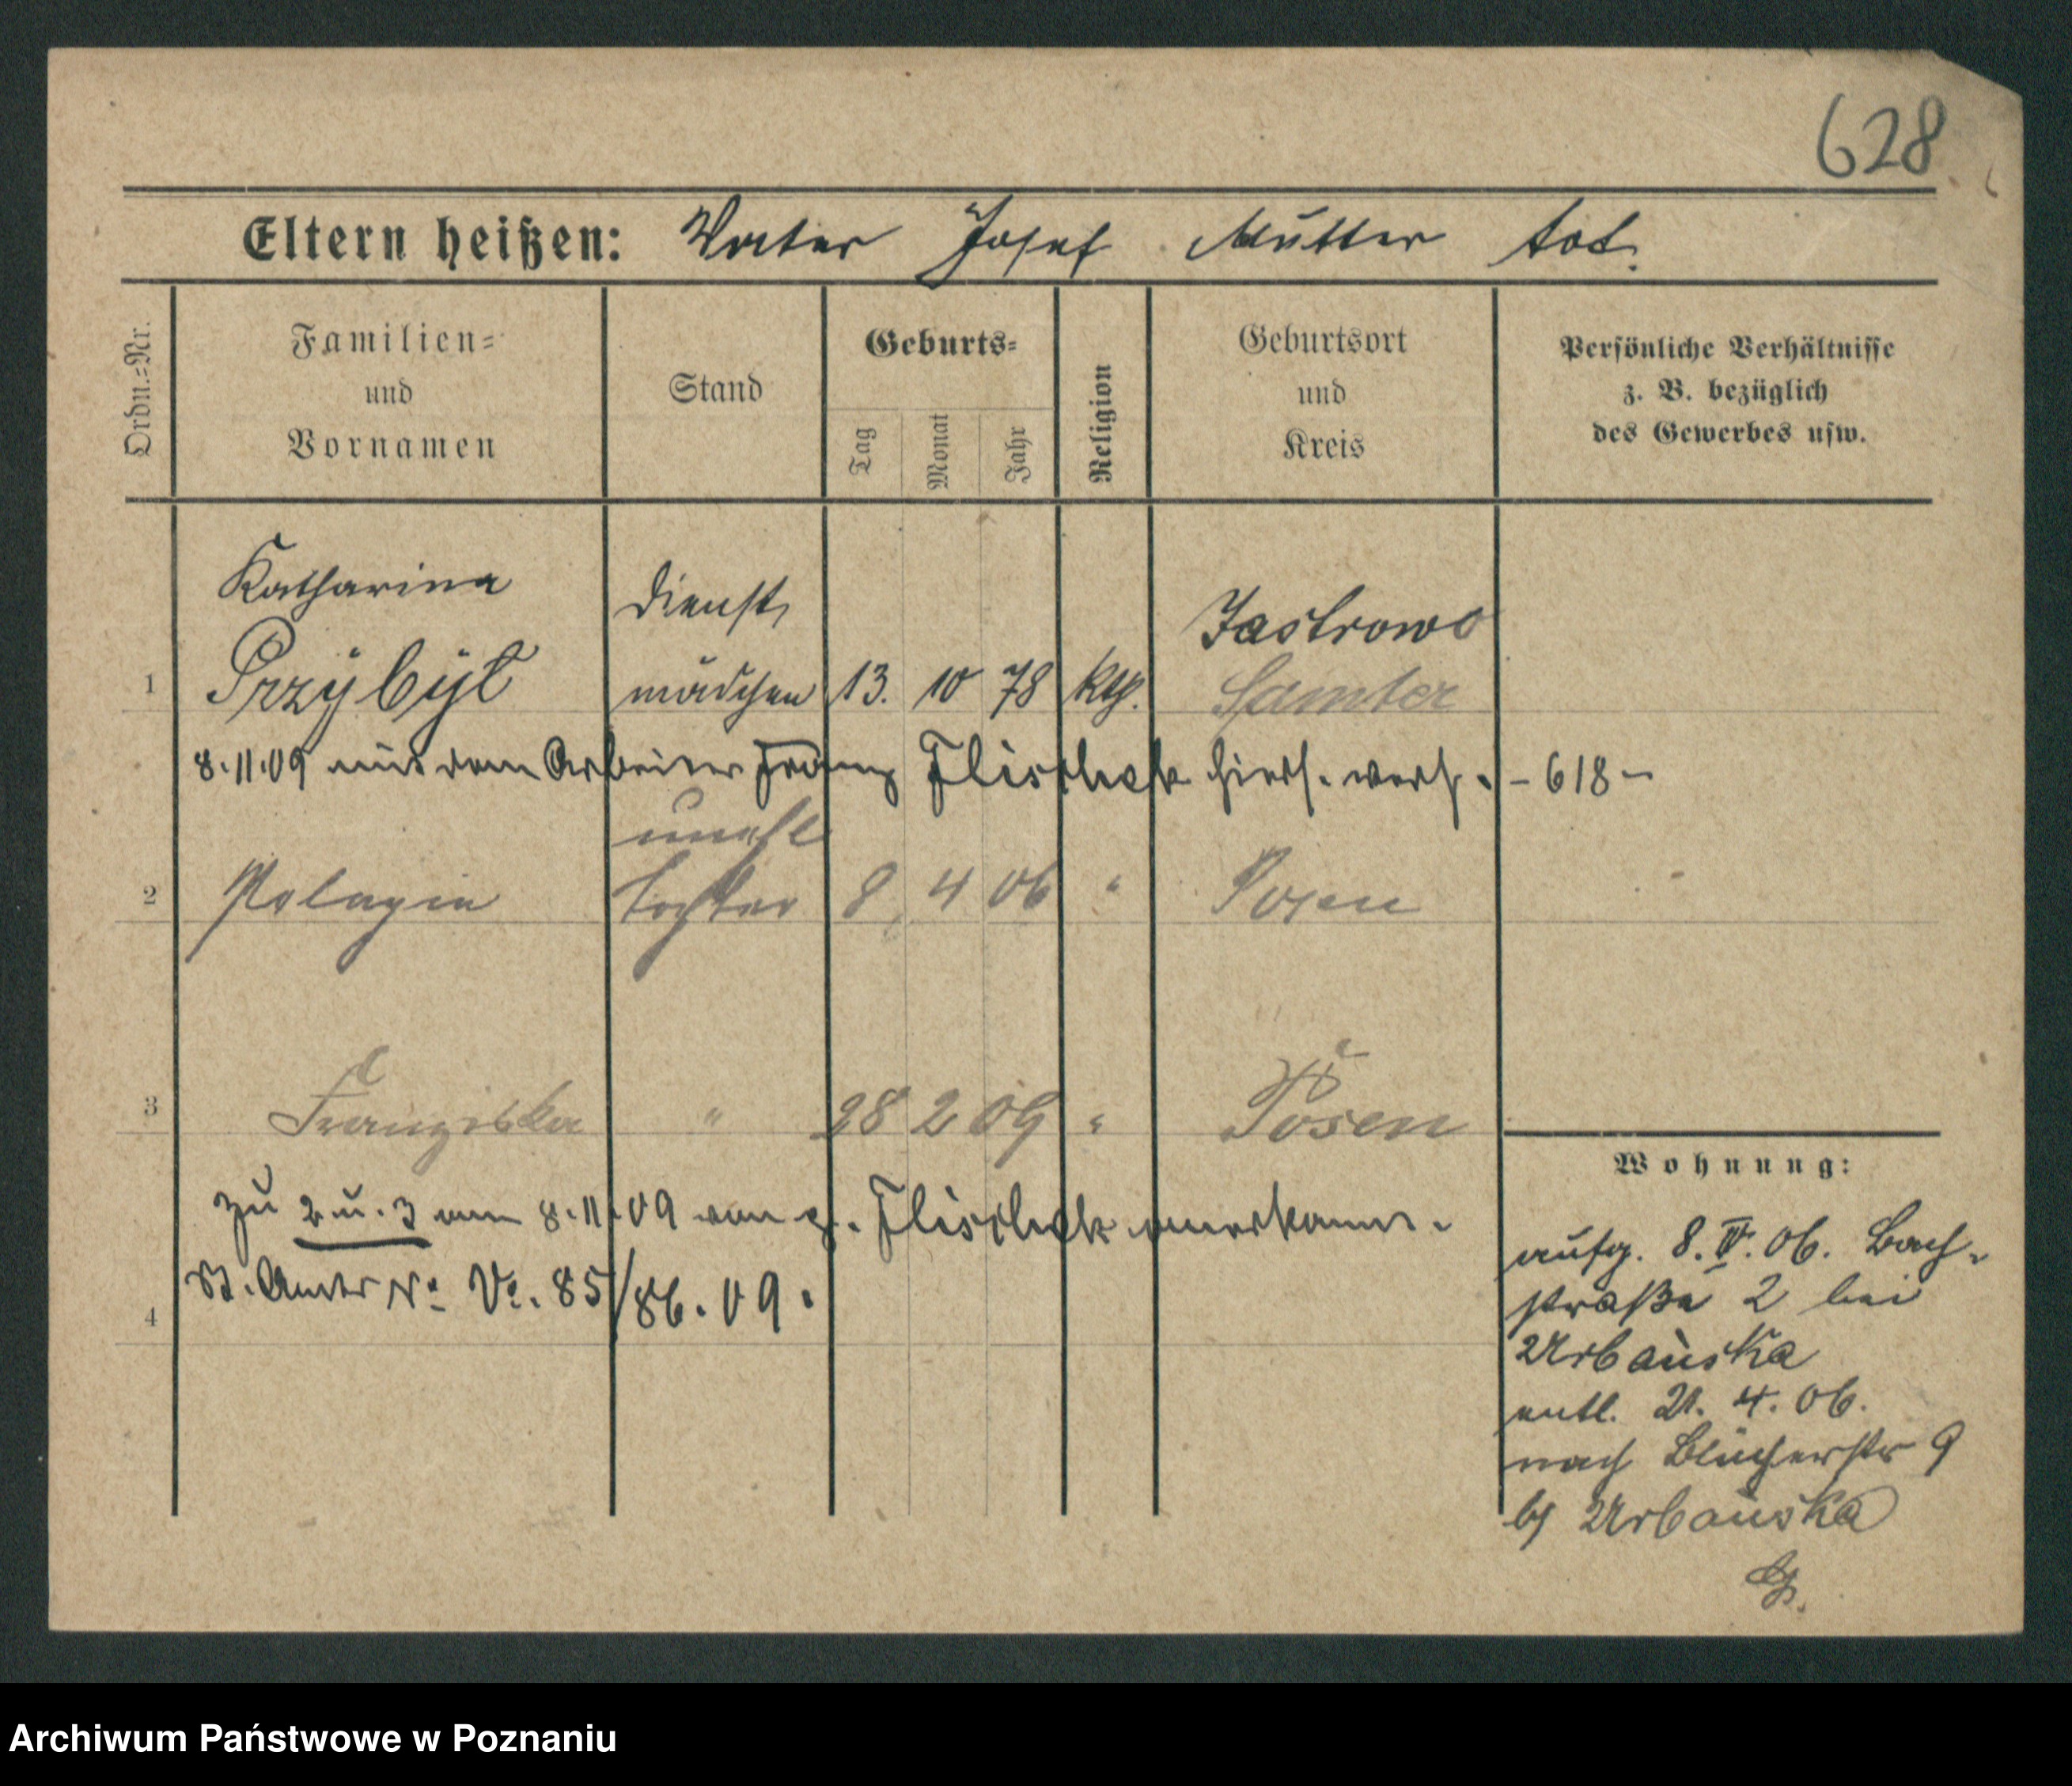 628
Eltern heißen: Vater Josef Mutter tot.
Ordn.=Nr.
Familien=
und
Vornamen
Stand
Geburts=
Tag
Monat
Jahr
Religion
Geburtsort
und
Kreis
Persönliche Verhältnisse
z. B. bezüglich
des Gewerbes usw.
Katharina Dienst
Jastrowo
1 Przybyl mädchen 13. 10 78 kth. Samter
8.11.09 mit dem Arbeiter Franz Flischek hiers. verh. - 618 -
unehl
2 Pelagia Tochter 8. 4 06 " Posen
3 Franziska " 28 2 09 " Posen
Wohnung:
zu 2 u. 3 am 8.11.09 von p. Flischek anerkannt.
St. Amt No V. 85/86.09.
4
aufg. 8. IV. 06. Bach-
straße 2 bei
Urbańska
entl. 21. 4. 06.
nach Blücherstr 9
by Urbańska
Archiwum Państwowe w Poznaniu